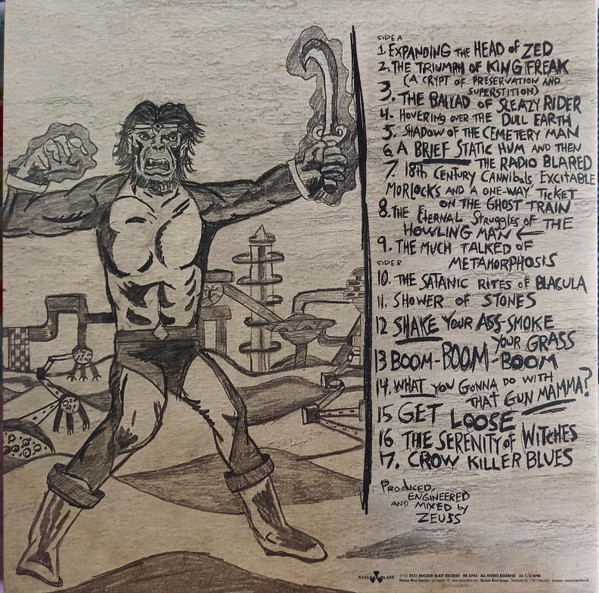 SIDE A
1. EXPANDING THE HEAD OF ZED
2. THE TRIUMPH OF KING FREAK
(A CRYPT OF PRESERVATION AND
SUPERSTITION)
3. THE BALLAD OF SLEAZY RIDER
4. HOVERING OVER THE DULL EARTH
5. SHADOW OF THE CEMETERY MAN
6. A BRIEF STATIC HUM AND THEN
THE RADIO BLARED
7. 18th CENTURY CANNIBALS, EXCITABLE
MORLOCKS AND A ONE-WAY TICKET
ON THE GHOST TRAIN
8. THE ETERNAL STRUGGLES OF THE
HOWLING MAN
9. THE MUCH TALKED OF
METAMORPHOSIS
SIDE B
10. THE SATANIC RITES OF BLACULA
11. SHOWER OF STONES
12 SHAKE YOUR ASS-SMOKE
YOUR GRASS
13 BOOM-BOOM-BOOM
14. WHAT YOU GONNA DO WITH
THAT GUN MAMMA?
15 GET LOOSE
16. THE SERENITY OF WITCHES
17. CROW KILLER BLUES
PRODUCED,
ENGINEERED
AND MIXED BY
ZEUSS
NUCLEAR BLAST
2021 NUCLEAR BLAST RECORDS ALL RIGHTS RESERVED 33 1/3 RPM